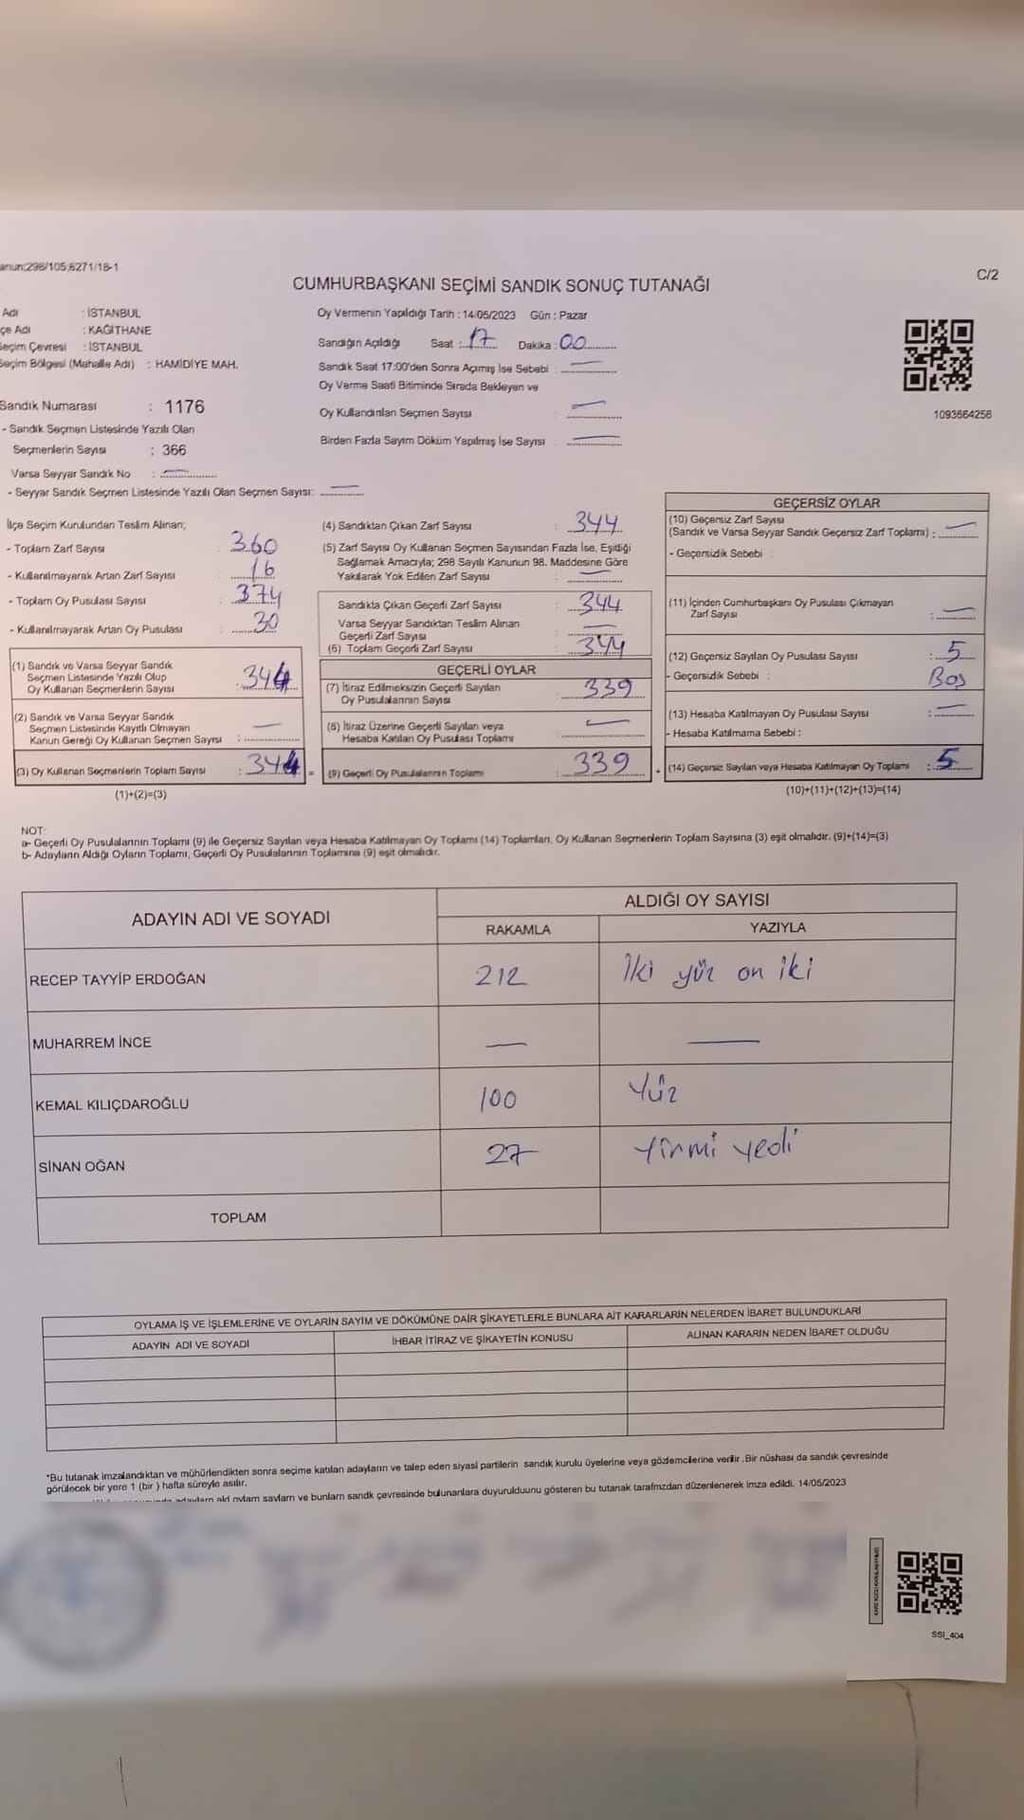 anun;298/105;6271/18-1
C/2
CUMHURBAŞKANI SEÇİMİ SANDIK SONUÇ TUTANAĞI
Adı : İSTANBUL
çe Adı : KAĞITHANE
Seçim Çevresi : İSTANBUL
Seçim Bölgesi (Mahalle Adı) : HAMİDİYE MAH.
Sandık Numarası : 1176
- Sandık Seçmen Listesinde Yazılı Olan
Seçmenlerin Sayısı : 366
Varsa Seyyar Sandık No :
- Seyyar Sandık Seçmen Listesinde Yazılı Olan Seçmen Sayısı:
Oy Vermenin Yapıldığı Tarih : 14/05/2023 Gün : Pazar
Sandığın Açıldığı Saat : 17 Dakika : 00
Sandık Saat 17:00'den Sonra Açılmış İse Sebebi :
Oy Verme Saati Bitiminde Sırada Bekleyen ve
Oy Kullandırılan Seçmen Sayısı :
Birden Fazla Sayım Döküm Yapılmış İse Sayısı :
1093664256
İlçe Seçim Kurulundan Teslim Alınan;
- Toplam Zarf Sayısı : 360
- Kullanılmayarak Artan Zarf Sayısı : 16
- Toplam Oy Pusulası Sayısı : 374
- Kullanılmayarak Artan Oy Pusulası : 30
(1) Sandık ve Varsa Seyyar Sandık
Seçmen Listesinde Yazılı Olup
Oy Kullanan Seçmenlerin Sayısı : 344
(2) Sandık ve Varsa Seyyar Sandık
Seçmen Listesinde Kayıtlı Olmayan
Kanun Gereği Oy Kullanan Seçmen Sayısı :
(3) Oy Kullanan Seçmenlerin Toplam Sayısı : 344
(1)+(2)=(3)
(4) Sandıktan Çıkan Zarf Sayısı : 344
(5) Zarf Sayısı Oy Kullanan Seçmen Sayısından Fazla İse, Eşitliği
Sağlamak Amacıyla; 298 Sayılı Kanunun 98. Maddesine Göre
Yakılarak Yok Edilen Zarf Sayısı :
Sandıkta Çıkan Geçerli Zarf Sayısı : 344
Varsa Seyyar Sandıktan Teslim Alınan
Geçerli Zarf Sayısı :
(6) Toplam Geçerli Zarf Sayısı : 344
GEÇERLİ OYLAR
(7) İtiraz Edilmeksizin Geçerli Sayılan
Oy Pusulalarının Sayısı : 339
(8) İtiraz Üzerine Geçerli Sayılan veya
Hesaba Katılan Oy Pusulası Toplamı :
(9) Geçerli Oy Pusulalarının Toplamı : 339
GEÇERSİZ OYLAR
(10) Geçersiz Zarf Sayısı
(Sandık ve Varsa Seyyar Sandık Geçersiz Zarf Toplamı) :
- Geçersizlik Sebebi :
(11) İçinden Cumhurbaşkanı Oy Pusulası Çıkmayan
Zarf Sayısı :
(12) Geçersiz Sayılan Oy Pusulası Sayısı : 5
- Geçersizlik Sebebi : Boş
(13) Hesaba Katılmayan Oy Pusulası Sayısı :
- Hesaba Katılmama Sebebi :
(14) Geçersiz Sayılan veya Hesaba Katılmayan Oy Toplamı : 5
(10)+(11)+(12)+(13)=(14)
NOT:
a- Geçerli Oy Pusulalarının Toplamı (9) ile Geçersiz Sayılan veya Hesaba Katılmayan Oy Toplamı (14) Toplamları, Oy Kullanan Seçmenlerin Toplam Sayısına (3) eşit olmalıdır. (9)+(14)=(3)
b- Adayların Aldığı Oyların Toplamı, Geçerli Oy Pusulalarının Toplamına (9) eşit olmalıdır.
ADAYIN ADI VE SOYADI
ALDIĞI OY SAYISI
RAKAMLA YAZIYLA
RECEP TAYYİP ERDOĞAN 212 İki yüz on iki
MUHARREM İNCE
KEMAL KILIÇDAROĞLU 100 Yüz
SİNAN OĞAN 27 Yirmi yedi
TOPLAM
OYLAMA İŞ VE İŞLEMLERİNE VE OYLARIN SAYIM VE DÖKÜMÜNE DAİR ŞİKAYETLERLE BUNLARA AİT KARARLARIN NELERDEN İBARET BULUNDUKLARI
ADAYIN ADI VE SOYADI İHBAR İTİRAZ VE ŞİKAYETİN KONUSU ALINAN KARARIN NEDEN İBARET OLDUĞU
*Bu tutanak imzalandıktan ve mühürlendikten sonra seçime katılan adayların ve talep eden siyasi partilerin sandık kurulu üyelerine veya gözlemcilerine verilir .Bir nüshası da sandık çevresinde
görülecek bir yere 1 (bir ) hafta süreyle asılır.
bulunanlara duyurulduunu gösteren bu tutanak tarafmzdan düzenlenerek imza edildi. 14/05/2023
SSI_404